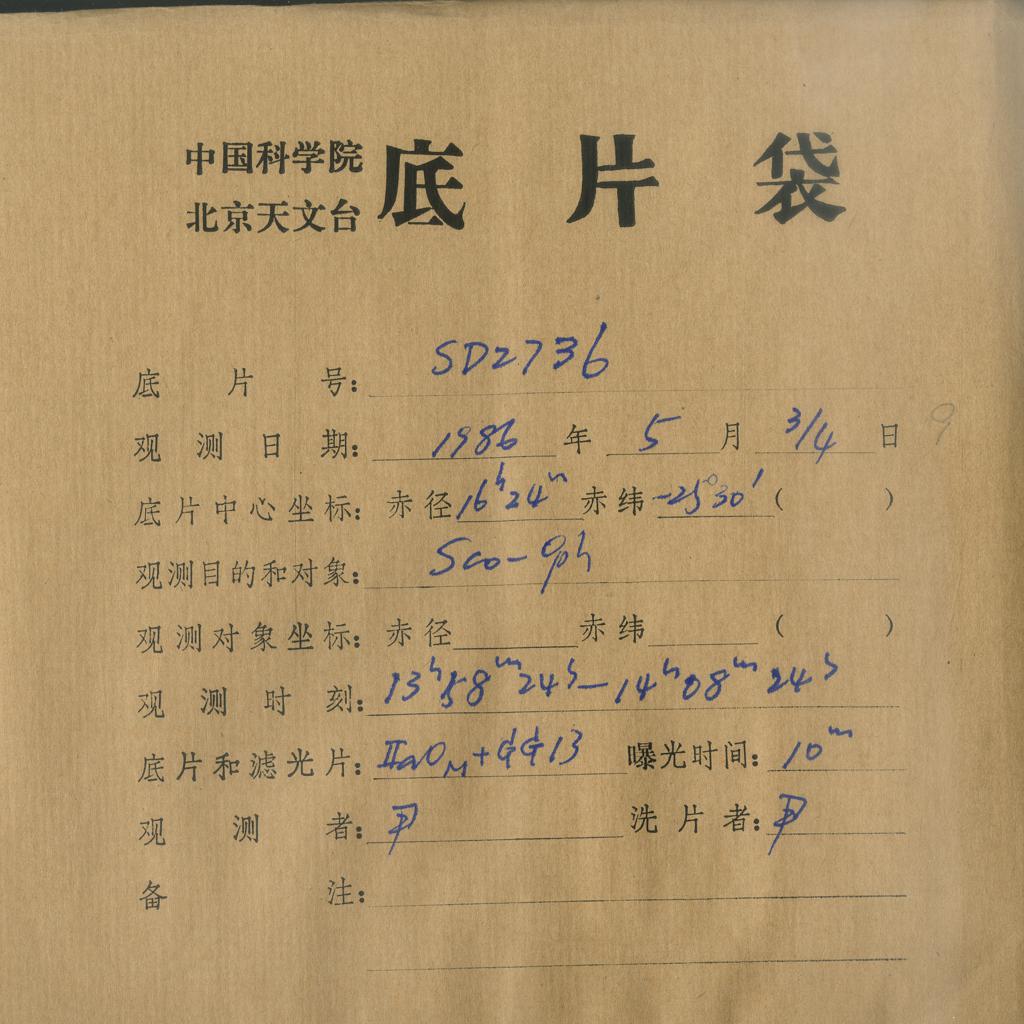 中国科学院
北京天文台
底片袋
底片号: SD2736
观测日期: 1986年5月3/4日 9
底片中心坐标: 赤径16h24m赤纬-25°30′( )
观测目的和对象: Sco-Oph
观测对象坐标: 赤径 赤纬 ( )
观测时刻: 13h58m24s-14h08m24s
底片和滤光片: IIaOM+GG13 曝光时间: 10m
观测者: 尹 洗片者: 尹
备注: